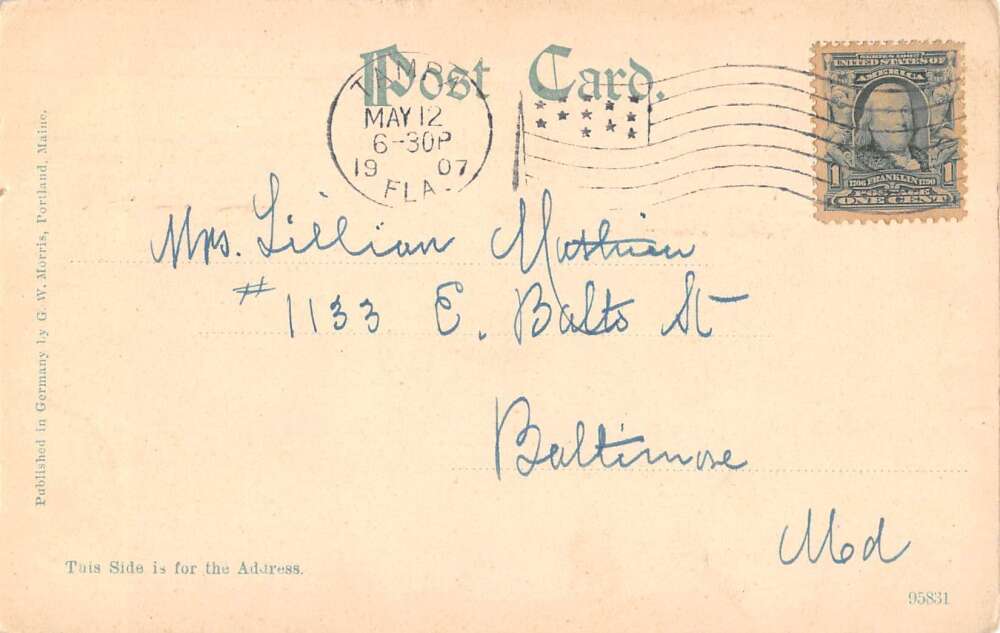 Post Card.
TAMPA
MAY 12
6-30P
1907
FLA.
SERIES 1902
UNITED STATES OF
AMERICA
1 1706 FRANKLIN 1790 1
POSTAGE
ONE CENT
Mrs. Lillian Mathieu
# 1133 E. Balto St
Baltimore
Md
Published in Germany by G. W. Morris, Portland, Maine.
This Side is for the Address.
95831